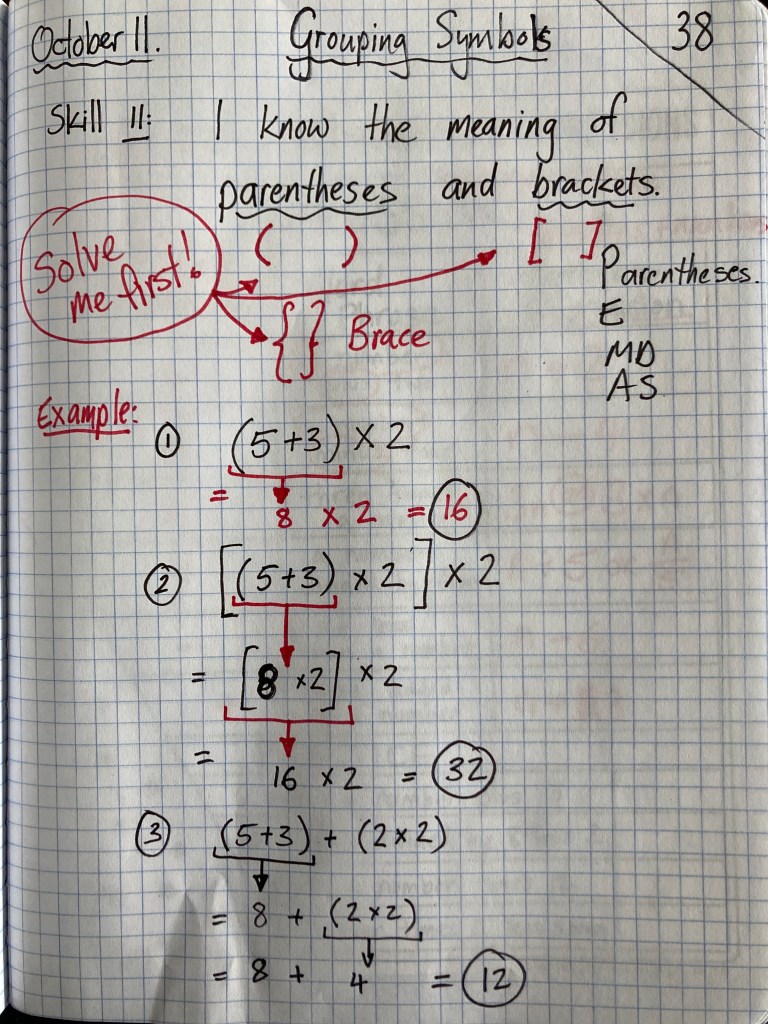 October 11. Grouping Symbols 38
Skill 11: I know the meaning of
parentheses and brackets.
Solve
me first!
( ) [ ]
{ } Brace
Parentheses.
E
MD
AS
Example:
① (5+3) × 2
= 8 × 2 = 16
② [(5+3) × 2] × 2
= [8 × 2] × 2
= 16 × 2 = 32
③ (5+3) + (2×2)
= 8 + (2×2)
= 8 + 4 = 12